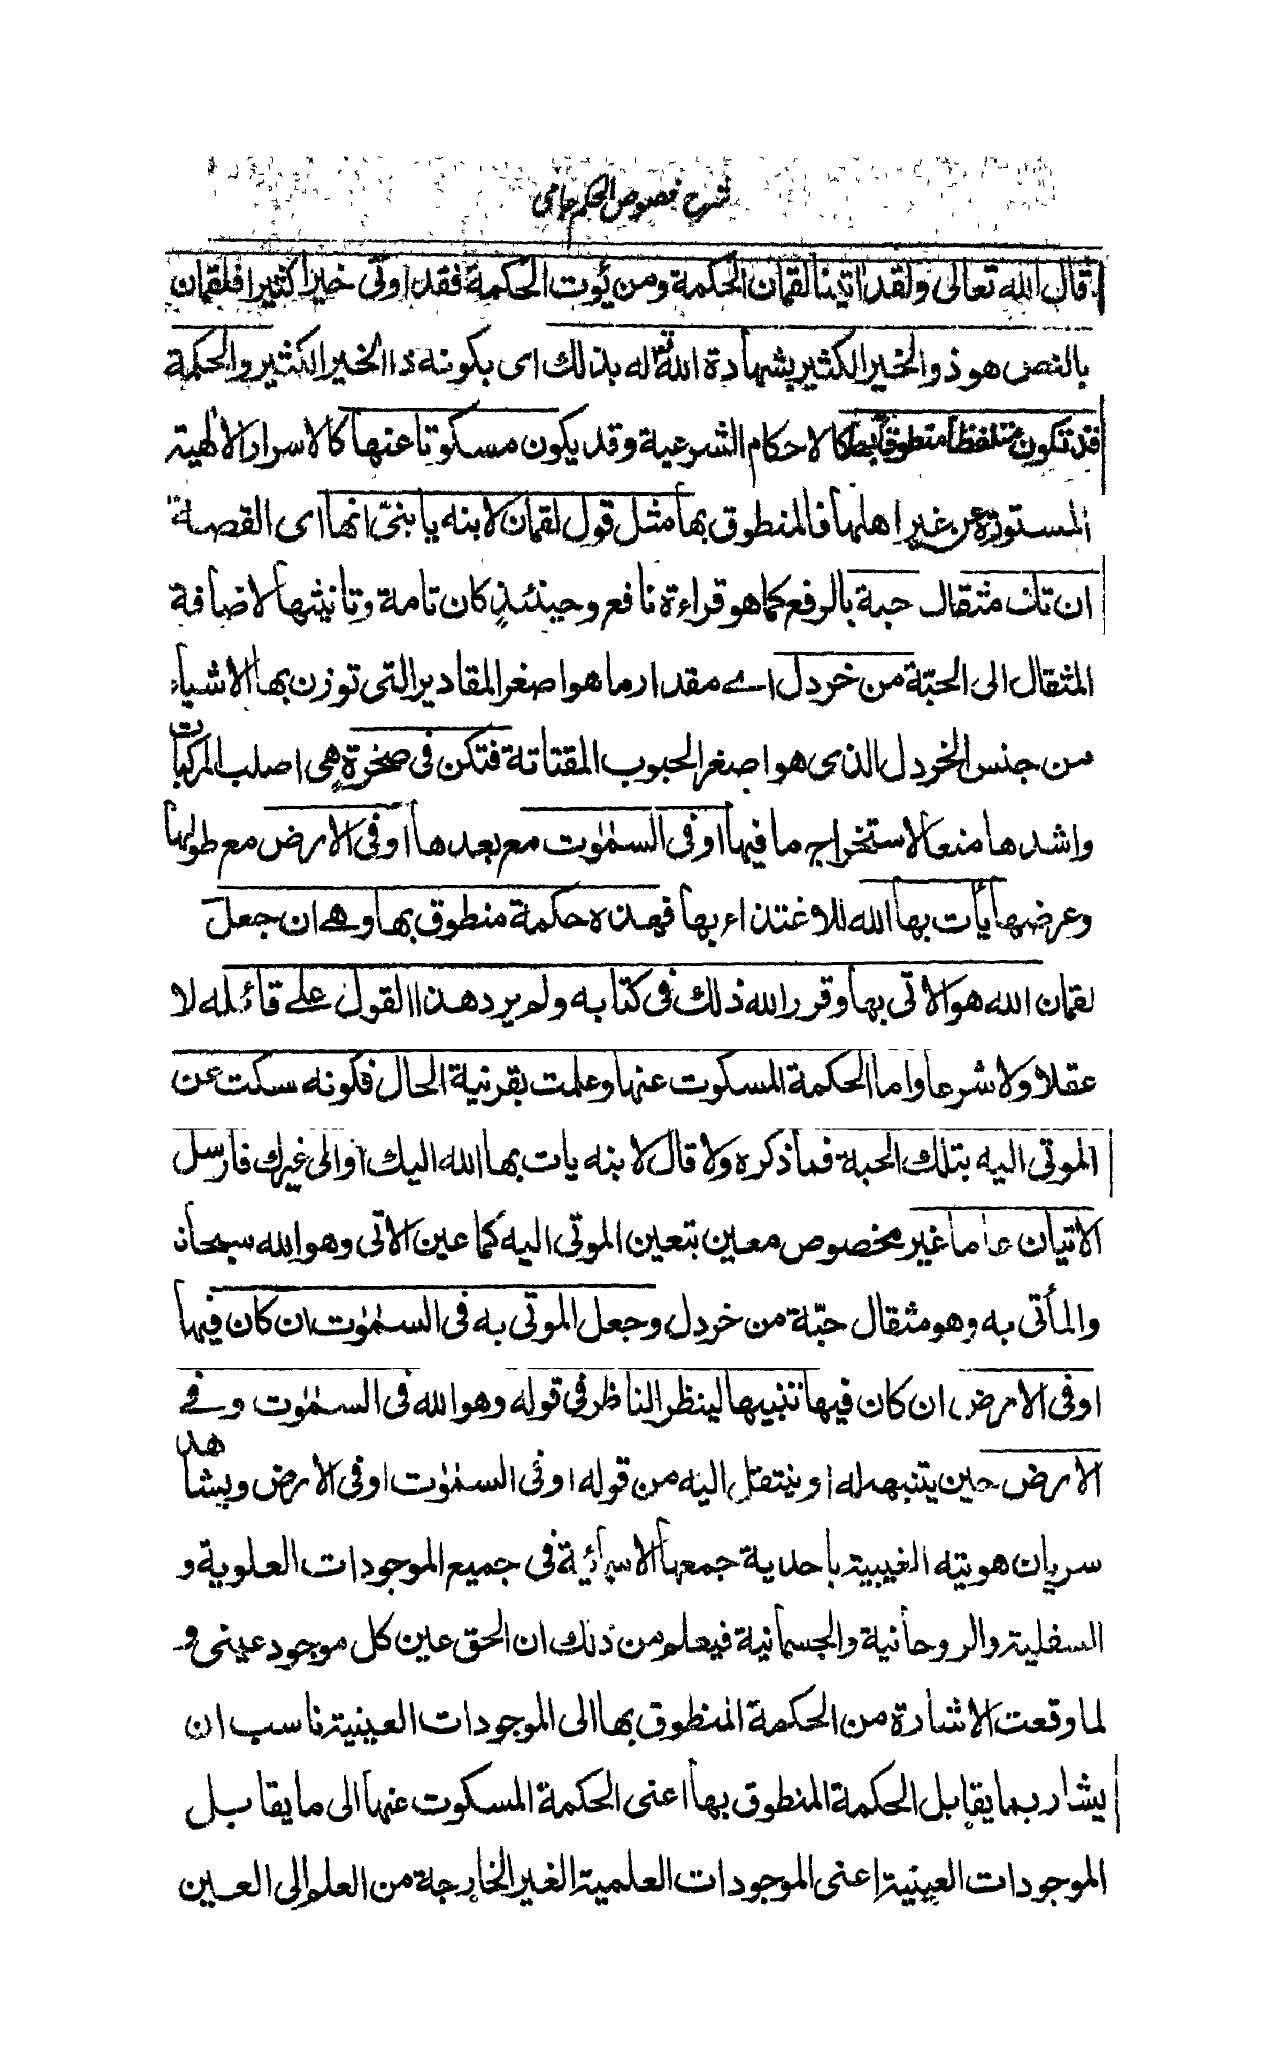 شرح فصوص الحكم جامى
قال الله تعالى ولقد اتينا لقمان الحكمة ومن يؤت الحكمة فقد اوتى خيرا كثيرا فلقمان
بالنص هو ذو الخير الكثير بشهادة الله له بذلك اى بكونه ذا الخير الكثير والحكمة
قد تكون متلفظا منطوقا بها كالاحكام الشرعية وقد يكون مسكوتا عنها كالاسرار الالهية
المستورة عن غير اهلها فالمنطوق بها مثل قول لقمان لابنه يا بنىّ انها اى القصة
ان تك مثقال حبة بالرفع كما هو قراءة نافع وحينئذ كان تامة وتانيثها لاضافة
المثقال الى الحبّة من خردل اے مقدار ما هو اصغر المقادير التى توزن بها الاشياء
من جنس الخردل الذى هو اصغر الحبوب المقتاتة فتكن فى صخرة هى اصلب المركبات
واشدها منعا لاستخراج ما فيها او فى السمٰوٰت مع بعدها او فى الارض مع طولها
وعرضها يأت بها الله للاغتذاء بها فهذه حكمة منطوق بها وهے ان جعل
لقمان الله هو الاتى بها وقرر الله ذلك فى كتابه ولم يرد هذا القول علے قائله لا
عقلا ولا شرعا واما الحكمة المسكوت عنها وعلمت بقرنية الحال فكونه سكت عن
الموتى اليه بتلك الحبة فما ذكره ولا قال لابنه يات بها الله اليك او الى غيرك فارسل
الاتيان عاما غير مخصوص معين بتعين الموتى اليه كما عين الاتى وهو الله سبحانه
والمأتى به وهو مثقال حبّة من خردل وجعل الموتى به فى السمٰوٰت ان كان فيها
او فى الارض ان كان فيها تنبيها لينظر الناظر فى قوله وهو الله فى السمٰوٰت وفے
الارض حين يتنبه له او ينتقل اليه من قوله او فى السمٰوٰت او فى الارض ويشاهد
سريان هويته الغيبية باحدية جمعها الاسمائية فى جميع الموجودات العلوية و
السفلية والروحانية والجسمانية فيعلم من ذلك ان الحق عين كل موجود عينى و
لما وقعت الاشارة من الحكمة المنطوق بها الى الموجودات العينية ناسب ان
يشار بما يقابل الحكمة المنطوق بها اعنى الحكمة المسكوت عنها الى ما يقابل
الموجودات العينية اعنى الموجودات العلمية الغير الخارجة من العلم الى العين